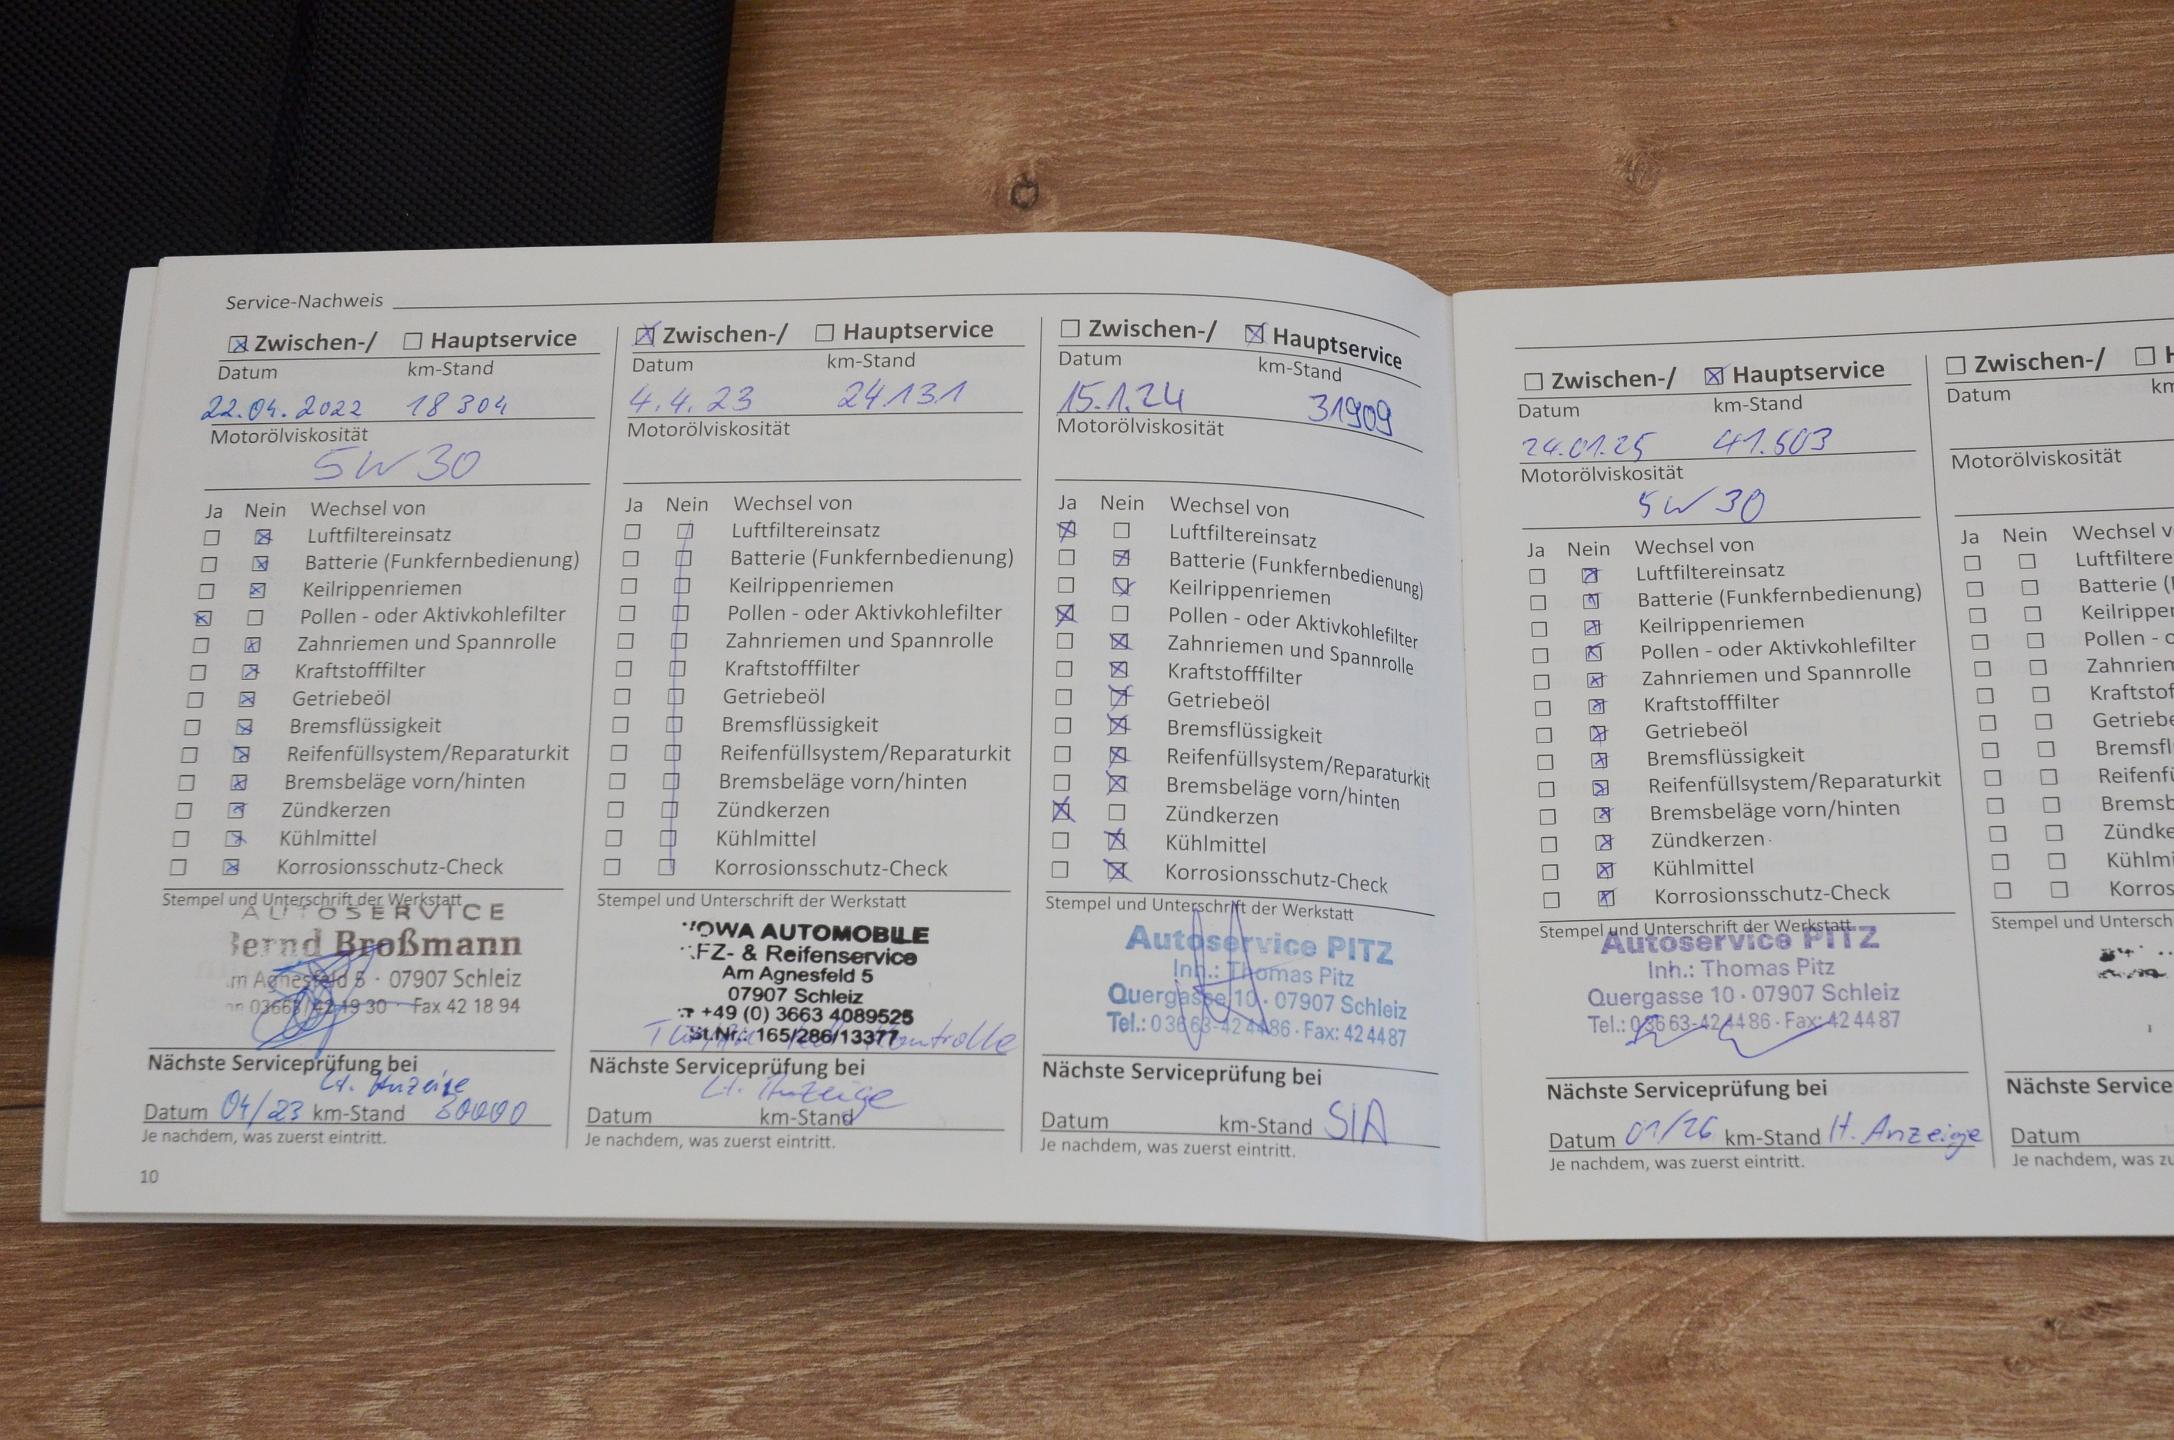 Service-Nachweis
☒ Zwischen-/ ☐ Hauptservice
Datum km-Stand
22.04.2022 18 304
Motorölviskosität
5W30
Ja Nein Wechsel von
☐ ☒ Luftfiltereinsatz
☐ ☒ Batterie (Funkfernbedienung)
☐ ☒ Keilrippenriemen
☒ ☐ Pollen - oder Aktivkohlefilter
☐ ☒ Zahnriemen und Spannrolle
☐ ☒ Kraftstofffilter
☐ ☒ Getriebeöl
☐ ☒ Bremsflüssigkeit
☐ ☒ Reifenfüllsystem/Reparaturkit
☐ ☒ Bremsbeläge vorn/hinten
☐ ☒ Zündkerzen
☐ ☒ Kühlmittel
☐ ☒ Korrosionsschutz-Check
Stempel und Unterschrift der Werkstatt
AUTOSERVICE
Bernd Broßmann
m Agnesfeld 5 · 07907 Schleiz
on 03663/42 19 30 Fax 42 18 94
Nächste Serviceprüfung bei
Lt. Anzeige
Datum 04/23 km-Stand 30000
Je nachdem, was zuerst eintritt.
10
☒ Zwischen-/ ☐ Hauptservice
Datum km-Stand
4.4.23 24.131
Motorölviskosität
Ja Nein Wechsel von
☐ ☐ Luftfiltereinsatz
☐ ☐ Batterie (Funkfernbedienung)
☐ ☐ Keilrippenriemen
☐ ☐ Pollen - oder Aktivkohlefilter
☐ ☐ Zahnriemen und Spannrolle
☐ ☐ Kraftstofffilter
☐ ☐ Getriebeöl
☐ ☐ Bremsflüssigkeit
☐ ☐ Reifenfüllsystem/Reparaturkit
☐ ☐ Bremsbeläge vorn/hinten
☐ ☐ Zündkerzen
☐ ☐ Kühlmittel
☐ ☐ Korrosionsschutz-Check
Stempel und Unterschrift der Werkstatt
OWA AUTOMOBILE
FZ- & Reifenservice
Am Agnesfeld 5
07907 Schleiz
+49 (0) 3663 4089525
St.Nr.: 165/286/13377
Kontrolle
Nächste Serviceprüfung bei
Lt. Anzeige
Datum km-Stand
Je nachdem, was zuerst eintritt.
☐ Zwischen-/ ☒ Hauptservice
Datum km-Stand
15.1.24 31909
Motorölviskosität
Ja Nein Wechsel von
☒ ☐ Luftfiltereinsatz
☐ ☒ Batterie (Funkfernbedienung)
☐ ☒ Keilrippenriemen
☒ ☐ Pollen - oder Aktivkohlefilter
☐ ☒ Zahnriemen und Spannrolle
☐ ☒ Kraftstofffilter
☐ ☒ Getriebeöl
☐ ☒ Bremsflüssigkeit
☐ ☒ Reifenfüllsystem/Reparaturkit
☐ ☒ Bremsbeläge vorn/hinten
☒ ☐ Zündkerzen
☐ ☒ Kühlmittel
☐ ☒ Korrosionsschutz-Check
Stempel und Unterschrift der Werkstatt
Autoservice PITZ
Inh.: Thomas Pitz
Quergasse 10 · 07907 Schleiz
Tel.: 0 36 63-42 44 86 · Fax: 42 44 87
Nächste Serviceprüfung bei
Datum km-Stand SIA
Je nachdem, was zuerst eintritt.
☐ Zwischen-/ ☒ Hauptservice
Datum km-Stand
24.01.25 41.503
Motorölviskosität
5W30
Ja Nein Wechsel von
☐ ☒ Luftfiltereinsatz
☐ ☒ Batterie (Funkfernbedienung)
☐ ☒ Keilrippenriemen
☐ ☒ Pollen - oder Aktivkohlefilter
☐ ☒ Zahnriemen und Spannrolle
☐ ☒ Kraftstofffilter
☐ ☒ Getriebeöl
☐ ☒ Bremsflüssigkeit
☐ ☒ Reifenfüllsystem/Reparaturkit
☐ ☒ Bremsbeläge vorn/hinten
☐ ☒ Zündkerzen
☐ ☒ Kühlmittel
☐ ☒ Korrosionsschutz-Check
Stempel und Unterschrift der Werkstatt
Autoservice PITZ
Inh.: Thomas Pitz
Quergasse 10 · 07907 Schleiz
Tel.: 0 36 63-42 44 86 · Fax: 42 44 87
Nächste Serviceprüfung bei
Datum 01/26 km-Stand lt. Anzeige
Je nachdem, was zuerst eintritt.
☐ Zwischen-/ ☐ H
Datum km
Motorölviskosität
Ja Nein Wechsel v
☐ ☐ Luftfiltere
☐ ☐ Batterie (
☐ ☐ Keilripper
☐ ☐ Pollen - o
☐ ☐ Zahnriem
☐ ☐ Kraftstof
☐ ☐ Getriebe
☐ ☐ Bremsfl
☐ ☐ Reifenfü
☐ ☐ Bremsb
☐ ☐ Zündke
☐ ☐ Kühlmi
☐ ☐ Korros
Stempel und Untersch
Nächste Service
Datum
Je nachdem, was zu